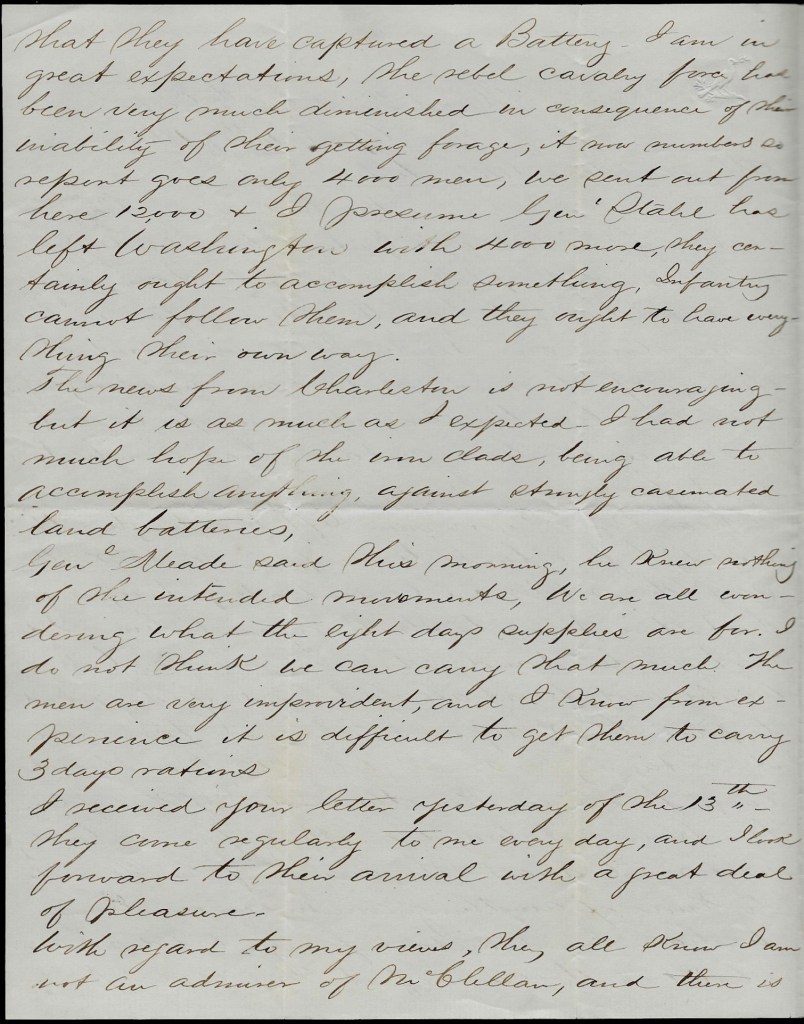 that they have captured a Battery - I am in
great expectations, the rebel cavalry force has
been very much diminished in consequence of the
inability of their getting forage, it now numbers so
report goes only 4000 men, we sent out from
here 12,000 & I presume Genl Stahl has
left Washington with 4000 more, they cer-
tainly ought to accomplish something, Infantry
cannot follow them, and they ought to have every-
thing their own way.
The news from Charleston is not encouraging -
but it is as much as I expected - I had not
much hope of the iron clads, being able to
accomplish anything, against strongly casemated
land batteries,
Genl Meade said this morning, he knew nothing
of the intended movements, We are all won-
dering what the eight days supplies are for. I
do not think we can carry that much. The
men are very improvident, and I know from ex-
perience it is difficult to get them to carry
3 days rations
I received your letter yesterday of the 13th -
they come regularly to me every day, and I look
forward to their arrival with a great deal
of pleasure.
With regard to my views, they all know I am
not an admirer of McClellan, and there is